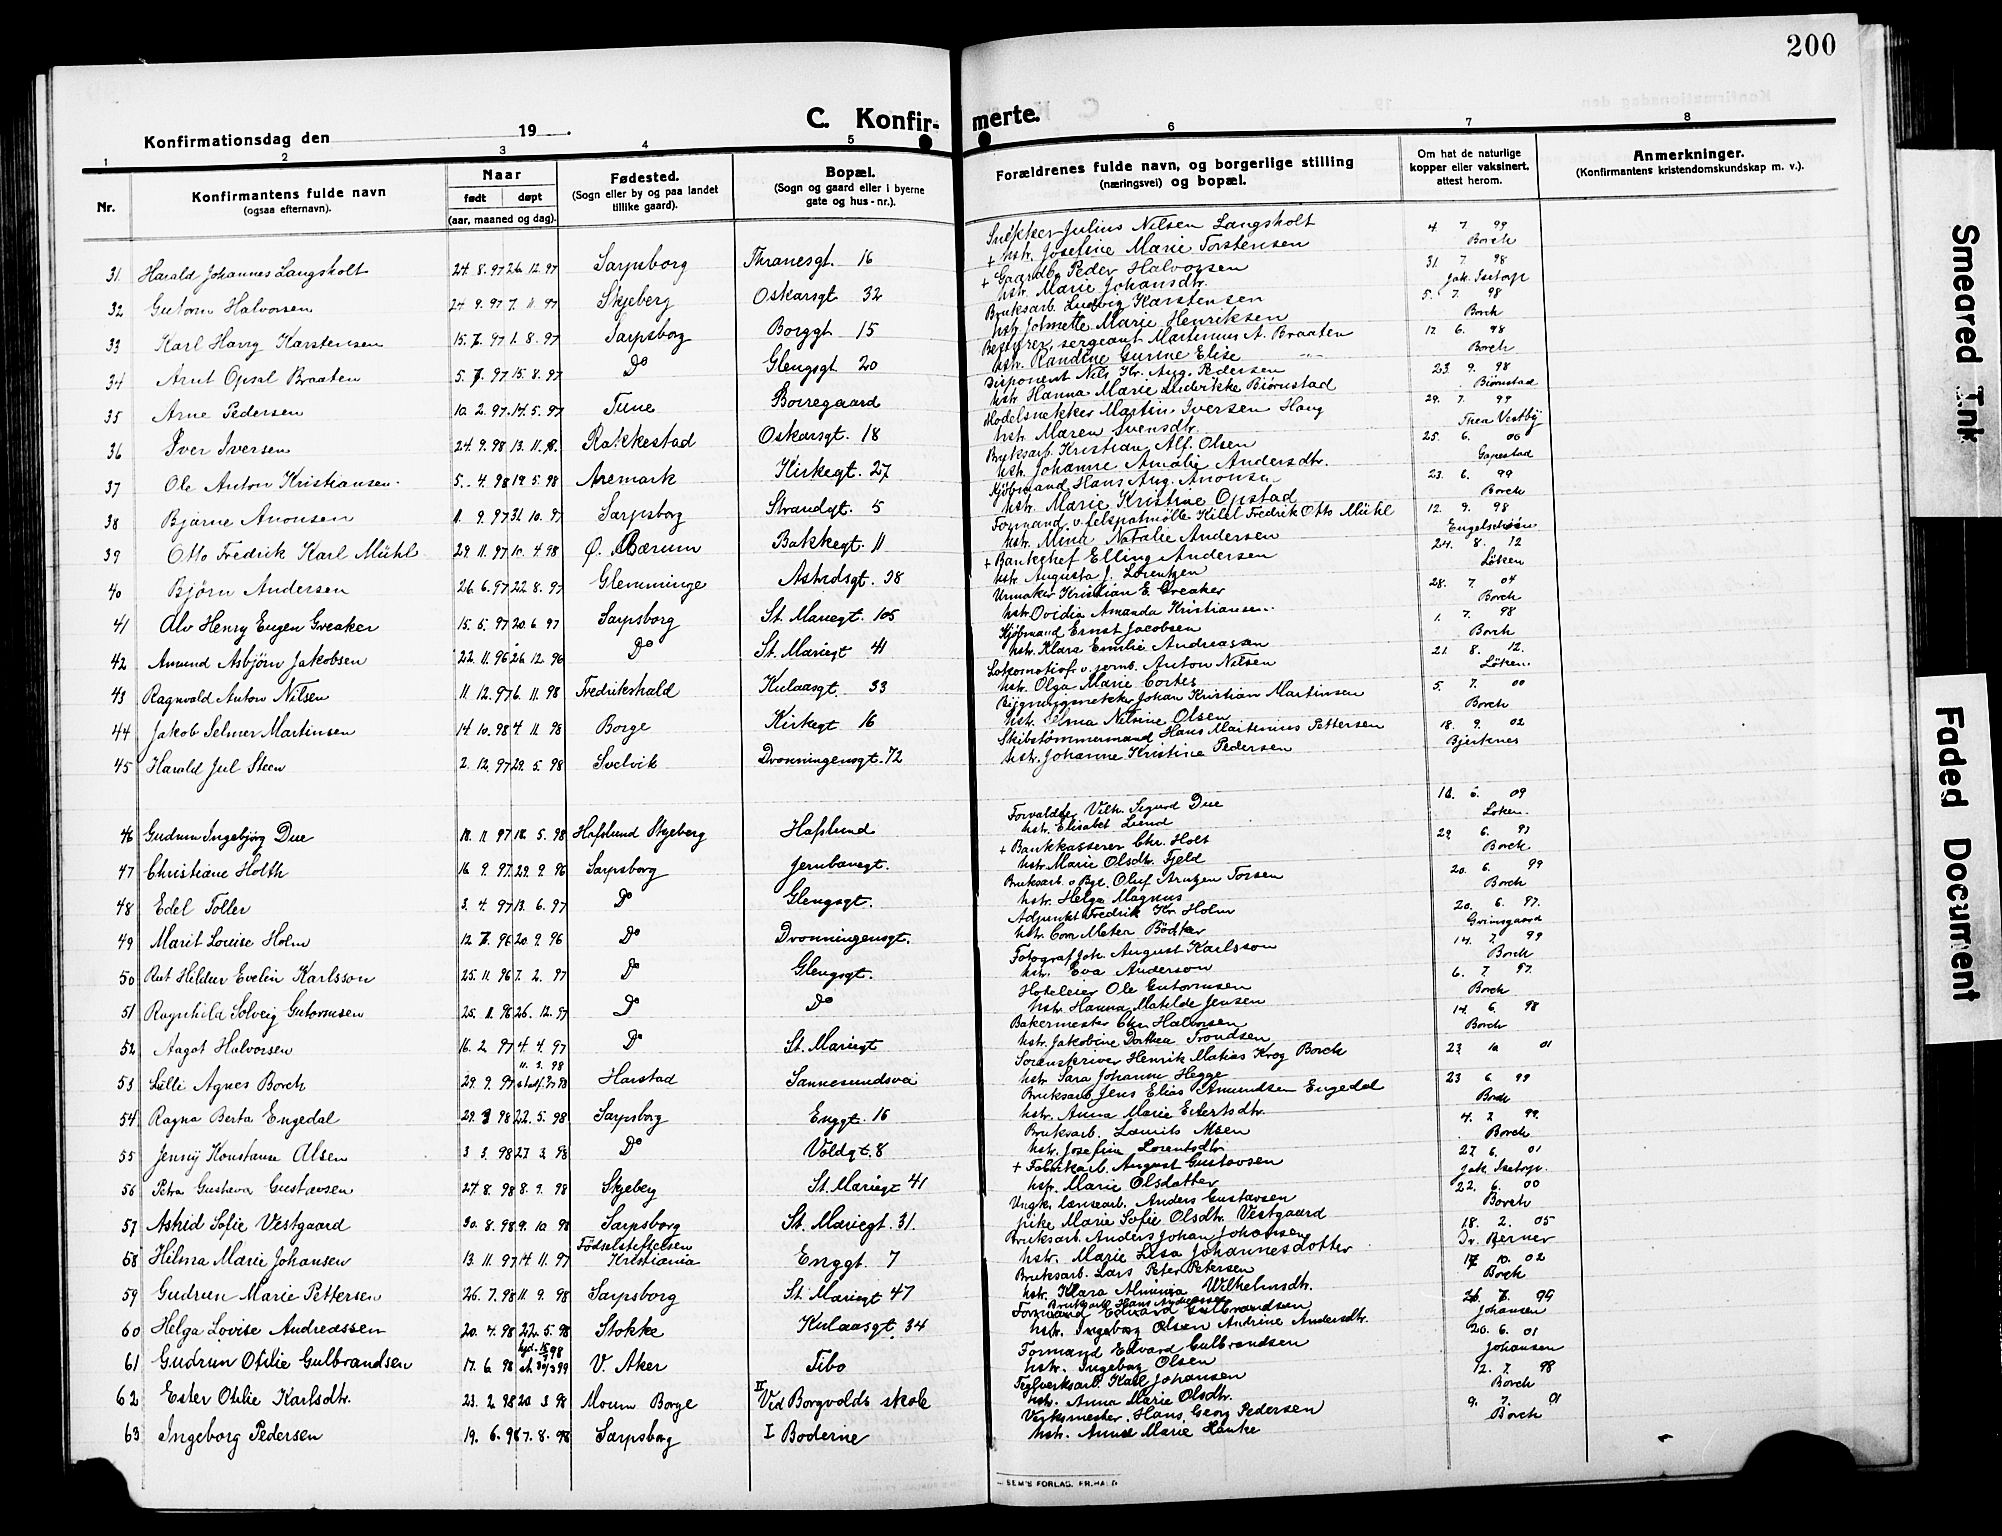 200
C. Konfirmerte.
Konfirmationsdag den 19 .
1 2 3 4 5 6 7 8
Nr.
Konfirmantens fulde navn
(ogsaa efternavn).
Naar
født døpt
(aar, maaned og dag).
Fødested.
(Sogn eller by og paa landet
tillike gaard).
Bopæl.
(Sogn og gaard eller i byerne
gate og hus-nr.).
Forældrenes fulde navn, og borgerlige stilling
(næringsvei) og bopæl.
Om hat de naturlige
kopper eller vaksinert.
attest herom.
Anmerkninger.
(Konfirmantens kristendomskundskap m. v.).
31 Harald Johannes Langsholt 24. 8. 97 26. 12. 97 Sarpsborg Thranesgt. 16 Snekker Julius Nilsen Langsholt 4 7. 99
hstr. Josefine Marie Torstensen Borch
32 Gutorm Halvorsen 24 9. 97 7. 11 97 Skjeberg Oskarsgt 32 + Gaardb. Peder Halvorsen 31. 7. 98
hstr. Marie Johansdtr. Jak. Isetorp
33 Karl Harry Karstensen 15. 7. 97 1. 8. 97 Sarpsborg Borggt 15 Bruksarb. Ludvig Karstensen 5. 7. 98
hstr. Marie Henriksen Borch
34 Arnt Opsal Braaten 5. 7. 97 15. 8. 97 Do Glengsgt 20 sergeant Martinius A. Braaten 12 6. 98
hstr. Randine Gurine Elise Borch
35 Arne Pedersen 10. 2. 97 14. 5. 97 Tune Borregaard Disponent Nils Kr. Aug. Pedersen 23. 9. 98
hstr Hanna Marie Bjørnstad Bjørnstad
36 Iver Iversen 24. 9. 98 13. 11. Rakkestad Oskarsgt. 18 Modelsnekker Martin Iversen Haug 29. 7. 99
hstr. Maren Svensdtr. Thea Vestby
37 Ole Anton Kristiansen 5. 4. 98 19. 5. 98 Aremark Kirkegt. 27 Bruksarb. Kristian Alf. Olsen 25. 6. 00
hstr. Johanne Amalie Andersdtr. Gapestad
38 Bjarne Anonsen 11. 9. 97 31. 10. 97 Sarpsborg Strandgt. 5 Kjøbmand Hans Aug. Anonsen 23. 6. 99
hstr. Marie Kristine Opstad Borch
39 Otto Fredrik Karl Mühl 29. 11. 97 10. 4. 98 Ø. Bærum Bakkegt. 11 Formand v. felspatmølle Fredrik Otto Mühl 12. 9. 98
hstr. Mina Natalie Andersen
40 Bjørn Andersen 26. 6. 97 22. 8. 97 Glemminge Astridsgt. 38 + Bankchef Elling Andersen 24. 8. 12
hstr. Augusta J. Lorentzen Løken
41 Alv Henry Eugen Greaker 15. 5. 97 20. 6. 97 Sarpsborg St. Mariegt. 105 Urmaker Kristian E. Greaker 28. 7 04
hstr Ovidia Amanda Kristiansen. Borch
42 Amund Asbjørn Jakobsen 22. 11. 96 26 12. 96 Do St. Mariegt 41 Kjøbmand Ernst Jacobsen 1. 7. 98
hstr. Klara Emilie Andreasen Borch
43 Ragnvald Anton Nilsen 11. 12. 97 6. 11. 98 Fredrikshald Kulaasgt. 33 Lokomotivf. v. jernb. Anton Nilsen 21. 8. 12.
hstr. Olga Marie Cortes Løken.
44 Jakob Selmer Martinsen 14 10. 98 4 11 98 Borge Kirkegt 16 Johan Kristian Martinsen 5. 7. 00
hstr. Selma Nilsine Olsen Borch
45 Harald Jul Steen 2. 12. 97 29. 5. 98 Svelvik Dronningensgt. 72 Skibstømmermand Hans Martinius Pettersen 18. 9. 02
hstr. Johanne Kristine Pedersen Bjerknes
46 Gudrun Ingebjørg Due 18. 11 97 18. 5. 98 Hafslund Skjeberg Hafslund Forvalder Vilh. Sigurd Due 18. 6. 09
hstr. Elisabet Lund Løken.
47 Christiane Holth 16 9. 97. 29. 9. 96 Sarpsborg Jernbanegt. + Bankkasserer Chr. Holt 29 6. 97
hstr Marie Olsdtr. Fjeld Borch
48 Edel Toller 3. 4. 97 13. 6. 97 Do Glengsgt. Bruksarb. Oluf 20. 6. 99
hstr. Helga Magnus Borch
49 Marit Louise Holm 12. 7. 96 20. 9. 96 Do Dronningensgt. Adjunkt Fredrik Kr. Holm 20. 6. 97.
hstr. Meter Bødtker Grimsgaard
50 Rut Hildur Evelin Karlsson 25. 11. 96 7. 2. 97 Do Glengsgt. Fotograf Joh. August Karlsson 14. 7. 99
hstr. Eva Anderson Borch
51 Ragnhild Solveig Gutormsen 25. 11. 98 26. 12. 97 Do Do Hoteleier Ole Gutormsen 6. 7. 97.
hstr. Hanna Matilde Jensen Borch
52 Aagot Halvorsen 16. 2. 97 4. 4. 97 Do St. Mariegt Bakermester Chr. Halvorsen 14. 6. 98
hstr. Jakobine Dorthea Trondsen Borch
53 Lilli Agnes Borch 29. 9. 97 11. 3. 98 Harstad Sannesundsvei Sorenskriver Henrik Matias Krog Borch 23 10 01
hstr. Sara Johanne Hegge
54 Ragna Berta Engedal 29. 3 98 22. 5. 98 Sarpsborg Enggt 16 Bruksarb. Jens Elias Amundsen Engedal 23 6. 99
hstr. Anna Marie Evertsdtr. Borch
55 Jenny Konstanse Alsen 3 3. 98 27. 3. 98 Do Voldgt. 8 Bruksarb. Laurits Alsen 4. 2 99.
hstr. Josefine Lorentsdtr. Borch
56 Petra Gustava Gustavsen 27. 8. 98 8. 9. 98 Skjeberg St. Mariegt 41 + Fabrikarb. August Gustavsen 27. 6. 01
hstr. Marie Olsdatter Jak. Isetorp.
57 Astrid Sofie Vestgaard 30. 8. 98 9. 10. 98 Sarpsborg St. Mariegt. 31. Ungk. Anders Gustavsen 22. 6. 00
pike Marie Sofie Olsdtr. Vestgaard Borch
58 Hilma Marie Johansen 13. 11. 97 14. 11. 97 Fødselsstiftelsen Kristiania Enggt. 7 Bruksarb. Anders Johan Johansen 18. 2. 05
hstr. Marie Lisa Johannesdotter Dr. Berner
59 Gudrun Marie Pettersen 26. 7. 98 11. 9. 98 Sarpsborg St. Mariegt 47 Bruksarb. Lars Peter Petersen 17 10. 02
hstr. Klara Alminia Wilhelmsdtr. Borch
60 Helga Lovise Andreassen 20. 4. 98 22. 5. 98 Stokke Kulaasgt. 34 Bruksarb. Hans Andreassen 26 7. 99
Formand Edvard Gulbrandsen
hstr. Ingeborg Olsen Andrine Andersdtr. Johansen
61 Gudrun Otilie Gulbrandsen 17. 6. 98 V. Aker Tibo Formand Edvard Gulbrandsen 20. 6. 01
hstr. Ingeborg Olsen Johansen
62 Ester Otilie Karlsdtr. 23. 2. 98 20 3 98 Moum Borge II Vid Borgvolds skole Teglverksarb. Karl Johansen 12. 7. 98
hstr. Anna Marie Olsdtr. Borch
63 Ingeborg Pedersen 19. 6. 98 7. 8. 98 Sarpsborg I Boderne Verksmester Hans Georg Pedersen 9. 7. 01
hstr. Anna Marie Hanke Borch
SEM'S FORLAG, FR.HALD
Smeared Ink
Faded Document